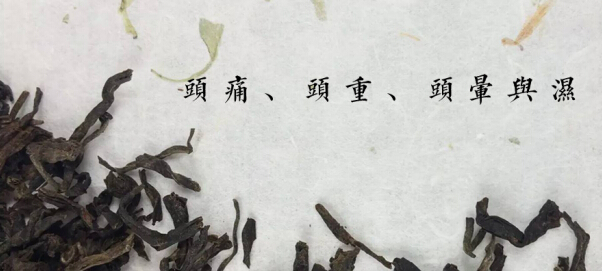 頭痛、頭重、頭暈與濕